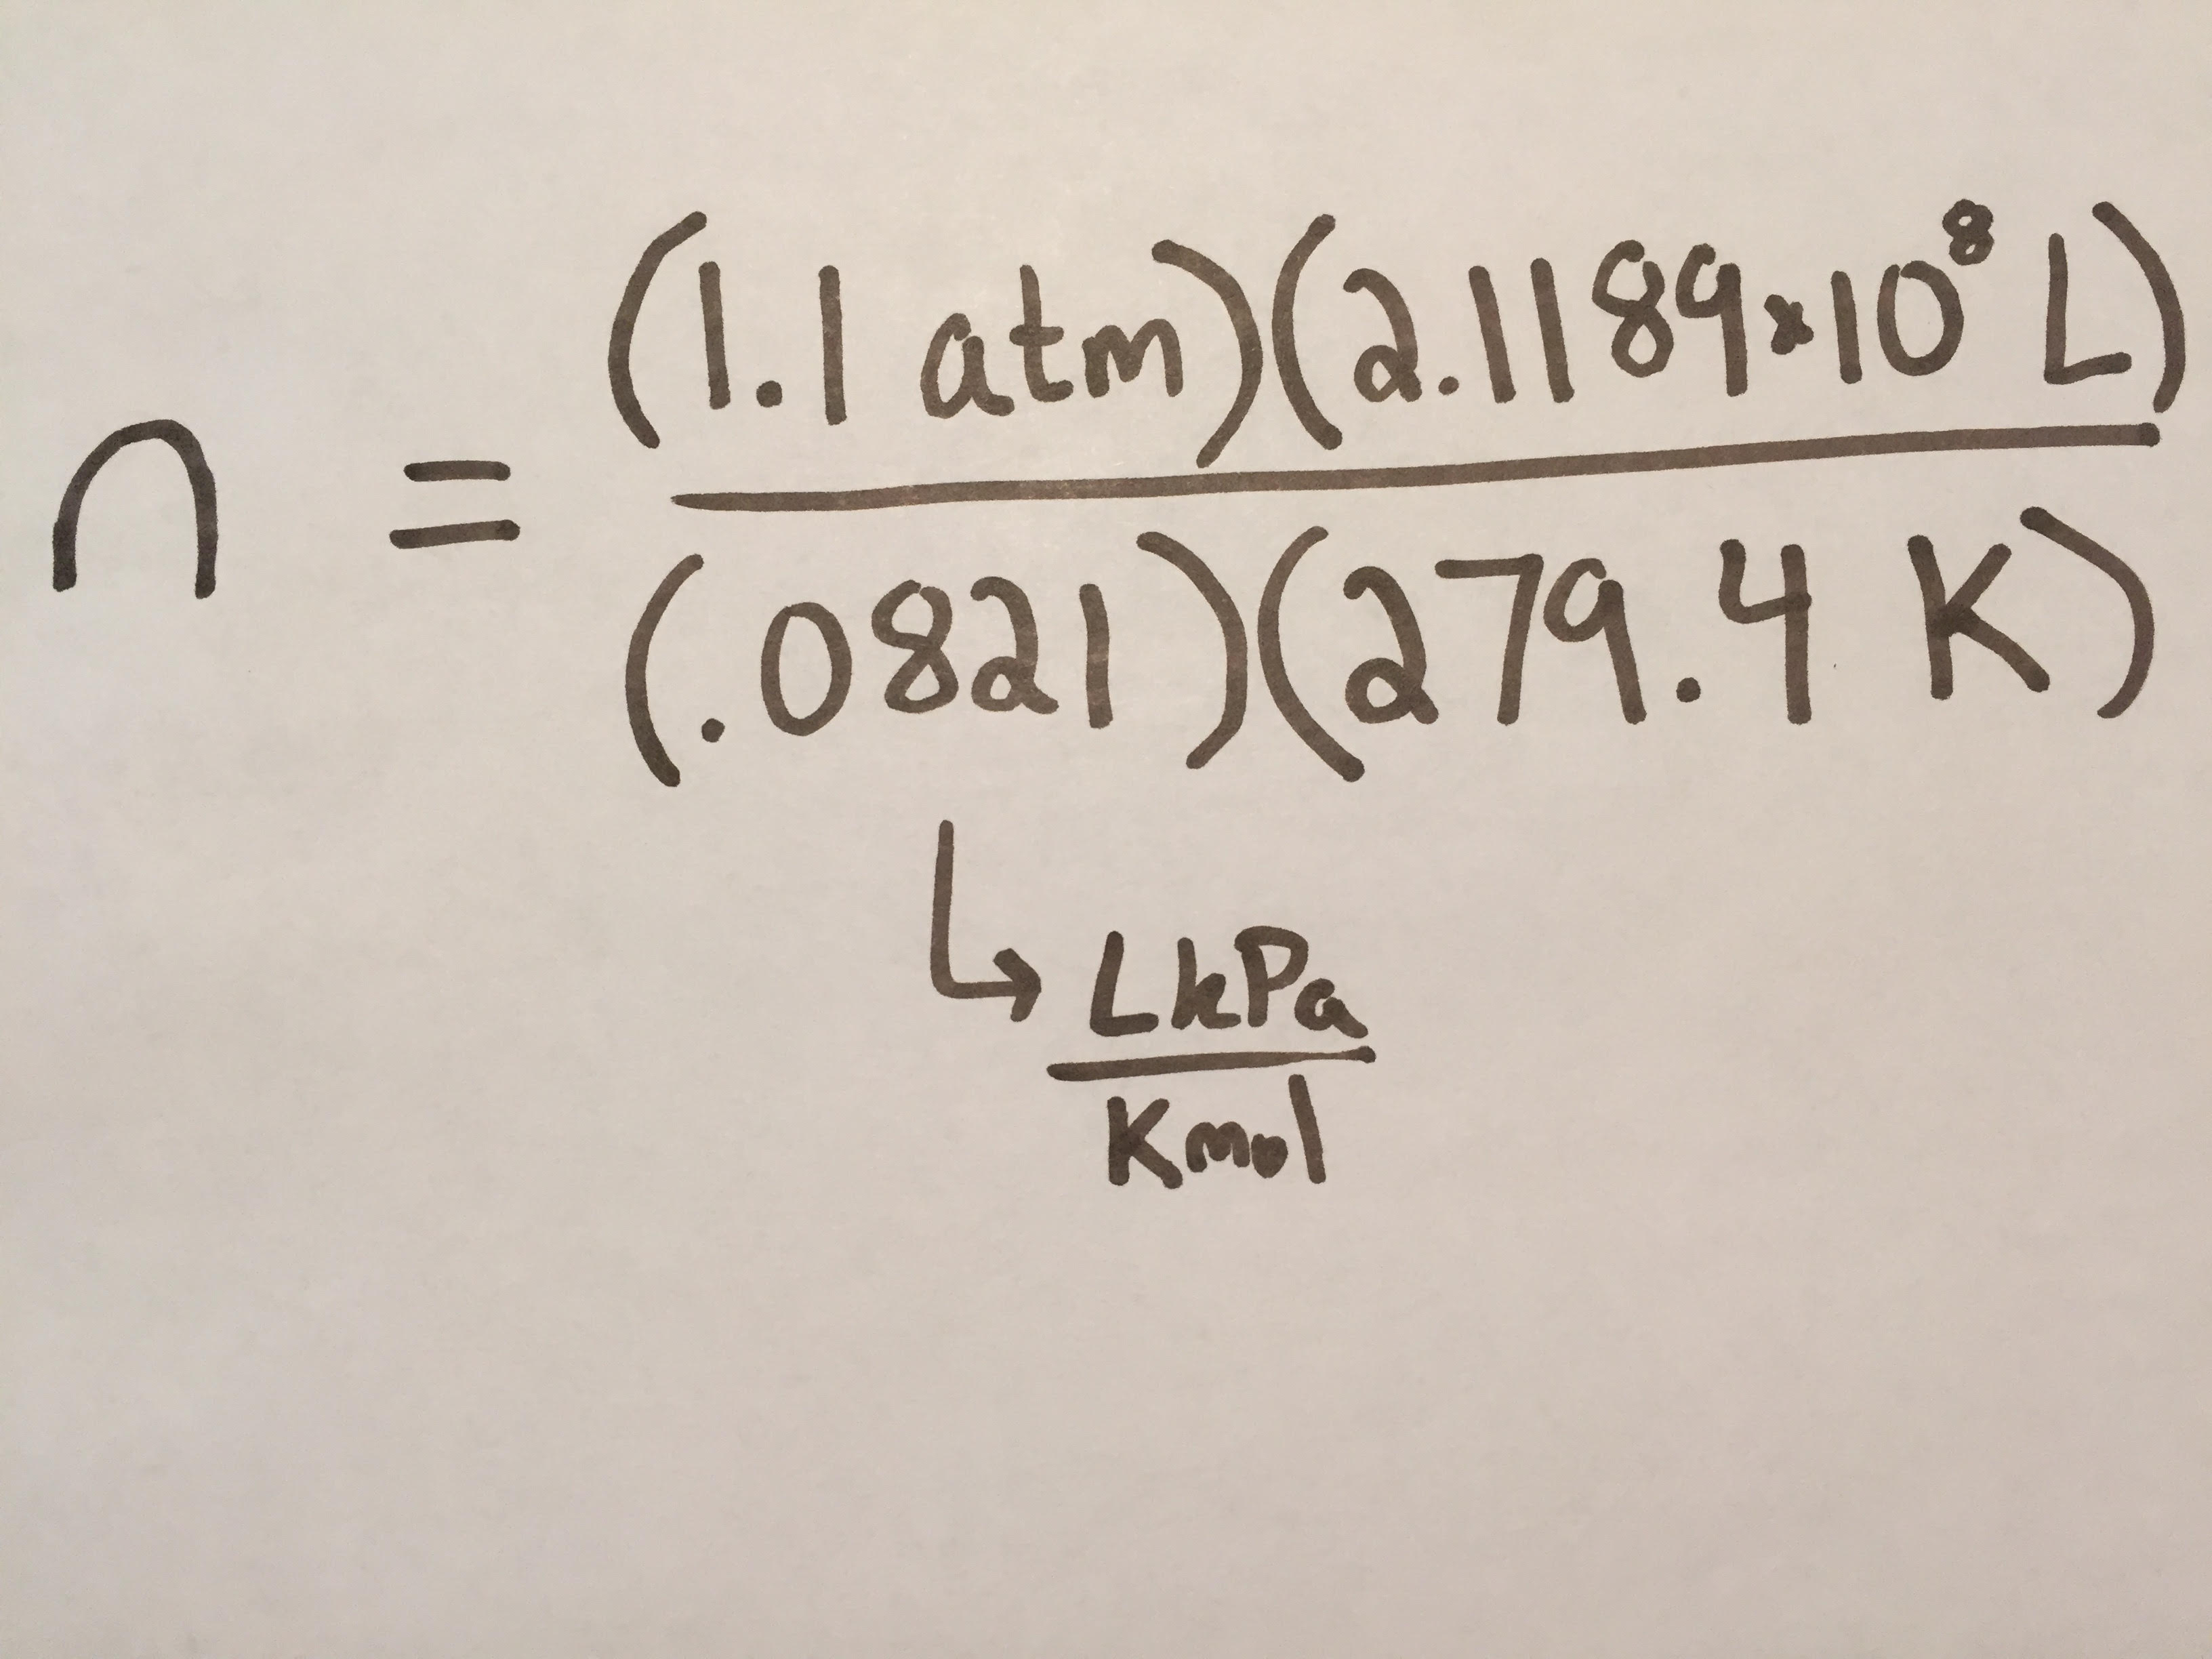 n = (1.1 atm)(2.1189×10⁸ L)
(.0821)(279.4 K)
↳ LkPa
Kmol